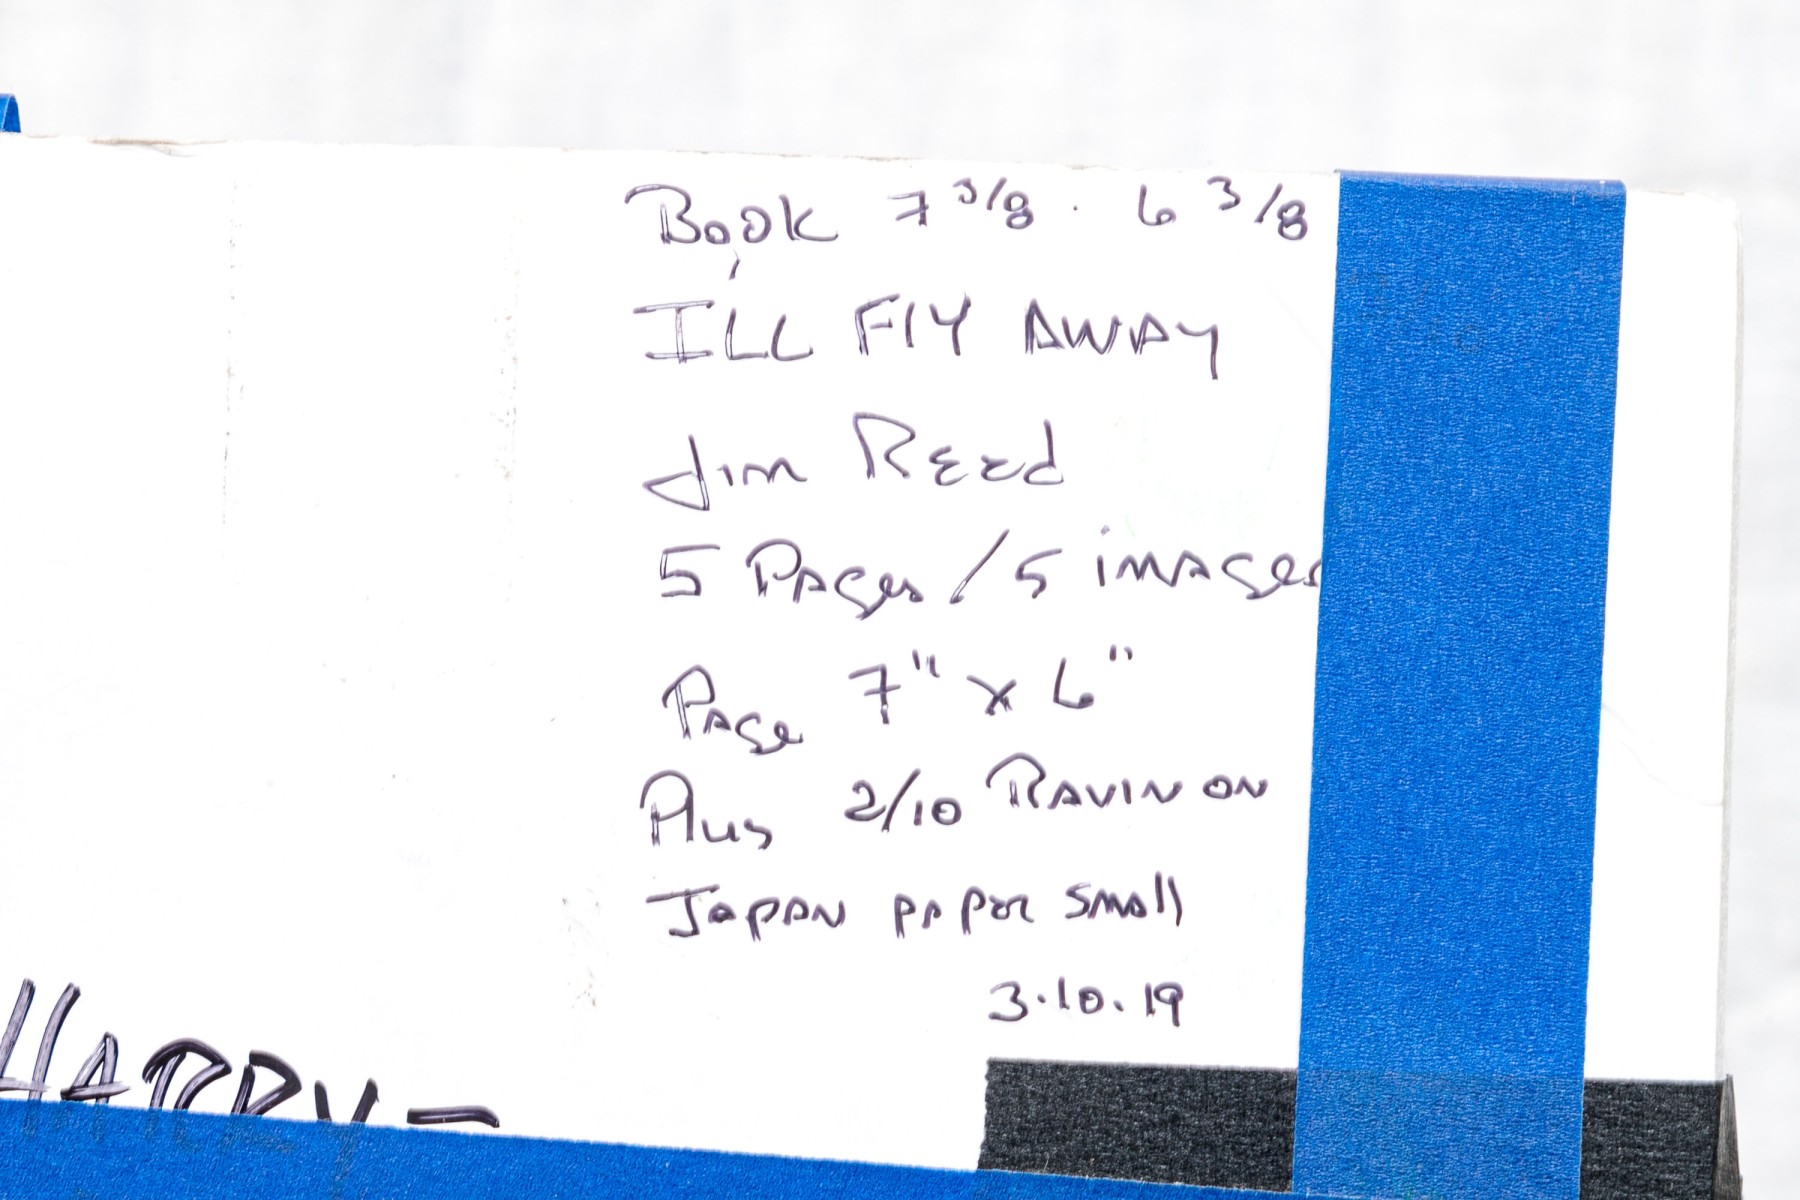 Book 7 3/8 · 6 3/8
I'LL FlY AWAY
Jim Reed
5 Pages / 5 images
Page 7" x 6"
Plus 2/10 RAVIN ON
JAPAN PAPER Small
3.10.19
HARRY